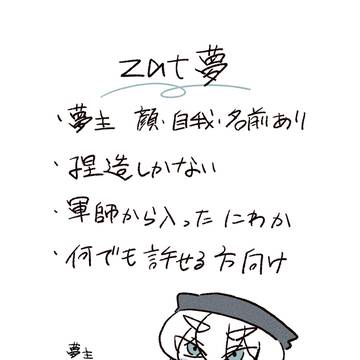 zat夢
・夢主 顔・自我・名前あり
・捏造しかない
・軍師から入った にわか
・何でも許せる方向け
夢主